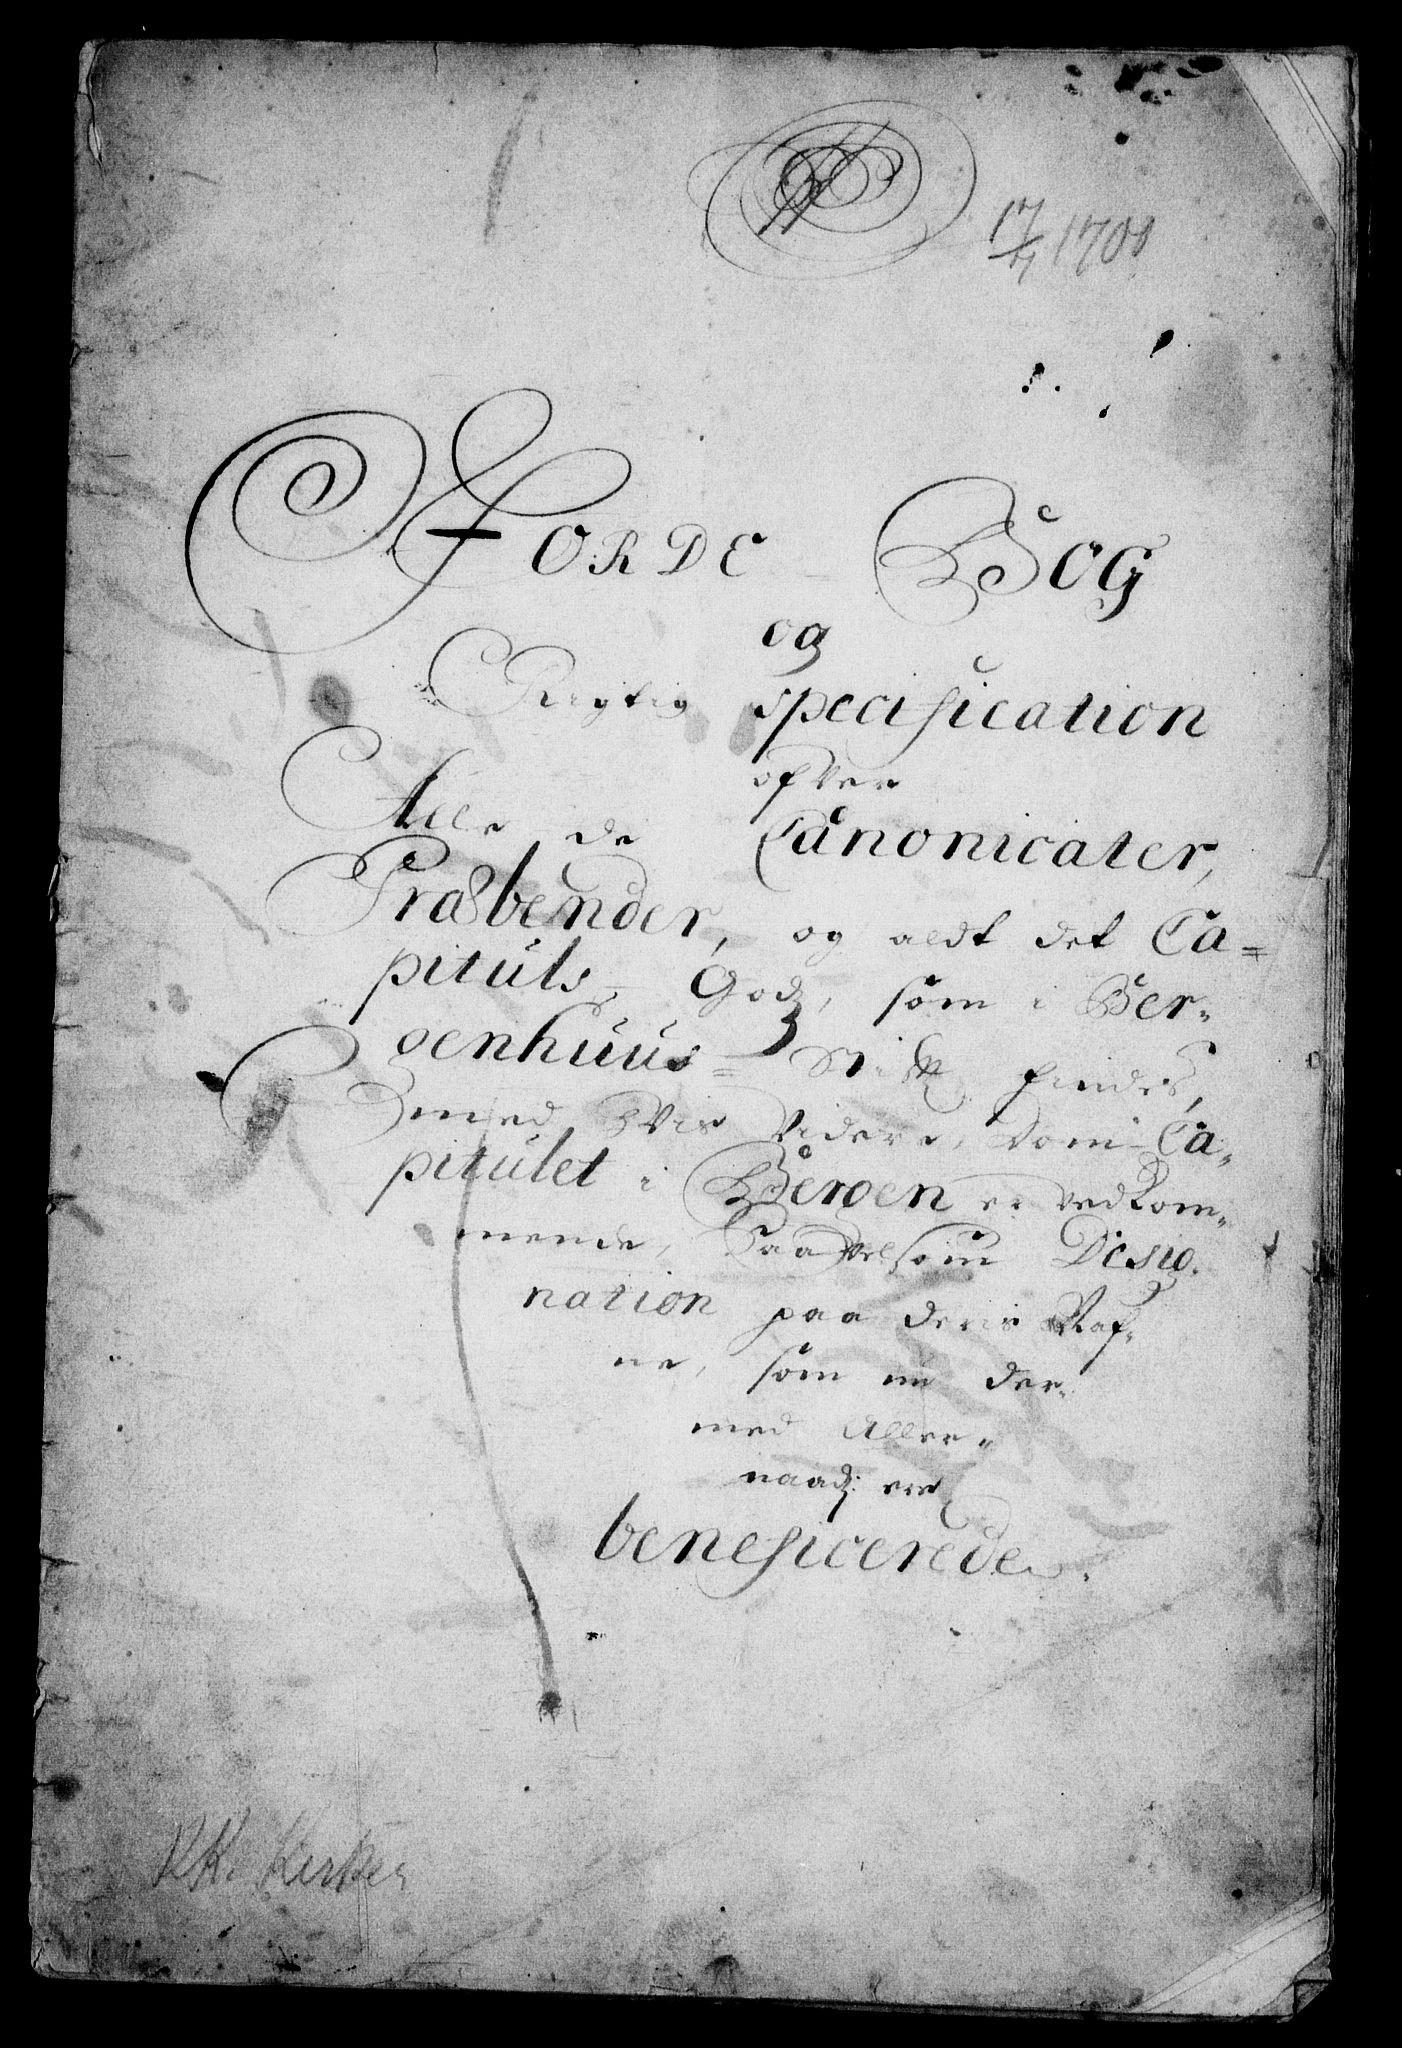 17/4 1700
JORDE Bog
og
Rigtig specification
ofver
Alle de Canonicater,
Præbender, og aldt det Ca=
pituls Godz, som i Ber-
genhuus= Stift findes,
med Hvis Videre, som Ca-
pitulet i Bergen er vedkom-
mende, Saavelsom Desig-
nation paa deris Naf-
ne, som nu der-
med Aller-
naadt: ere
beneficerede.
RK.